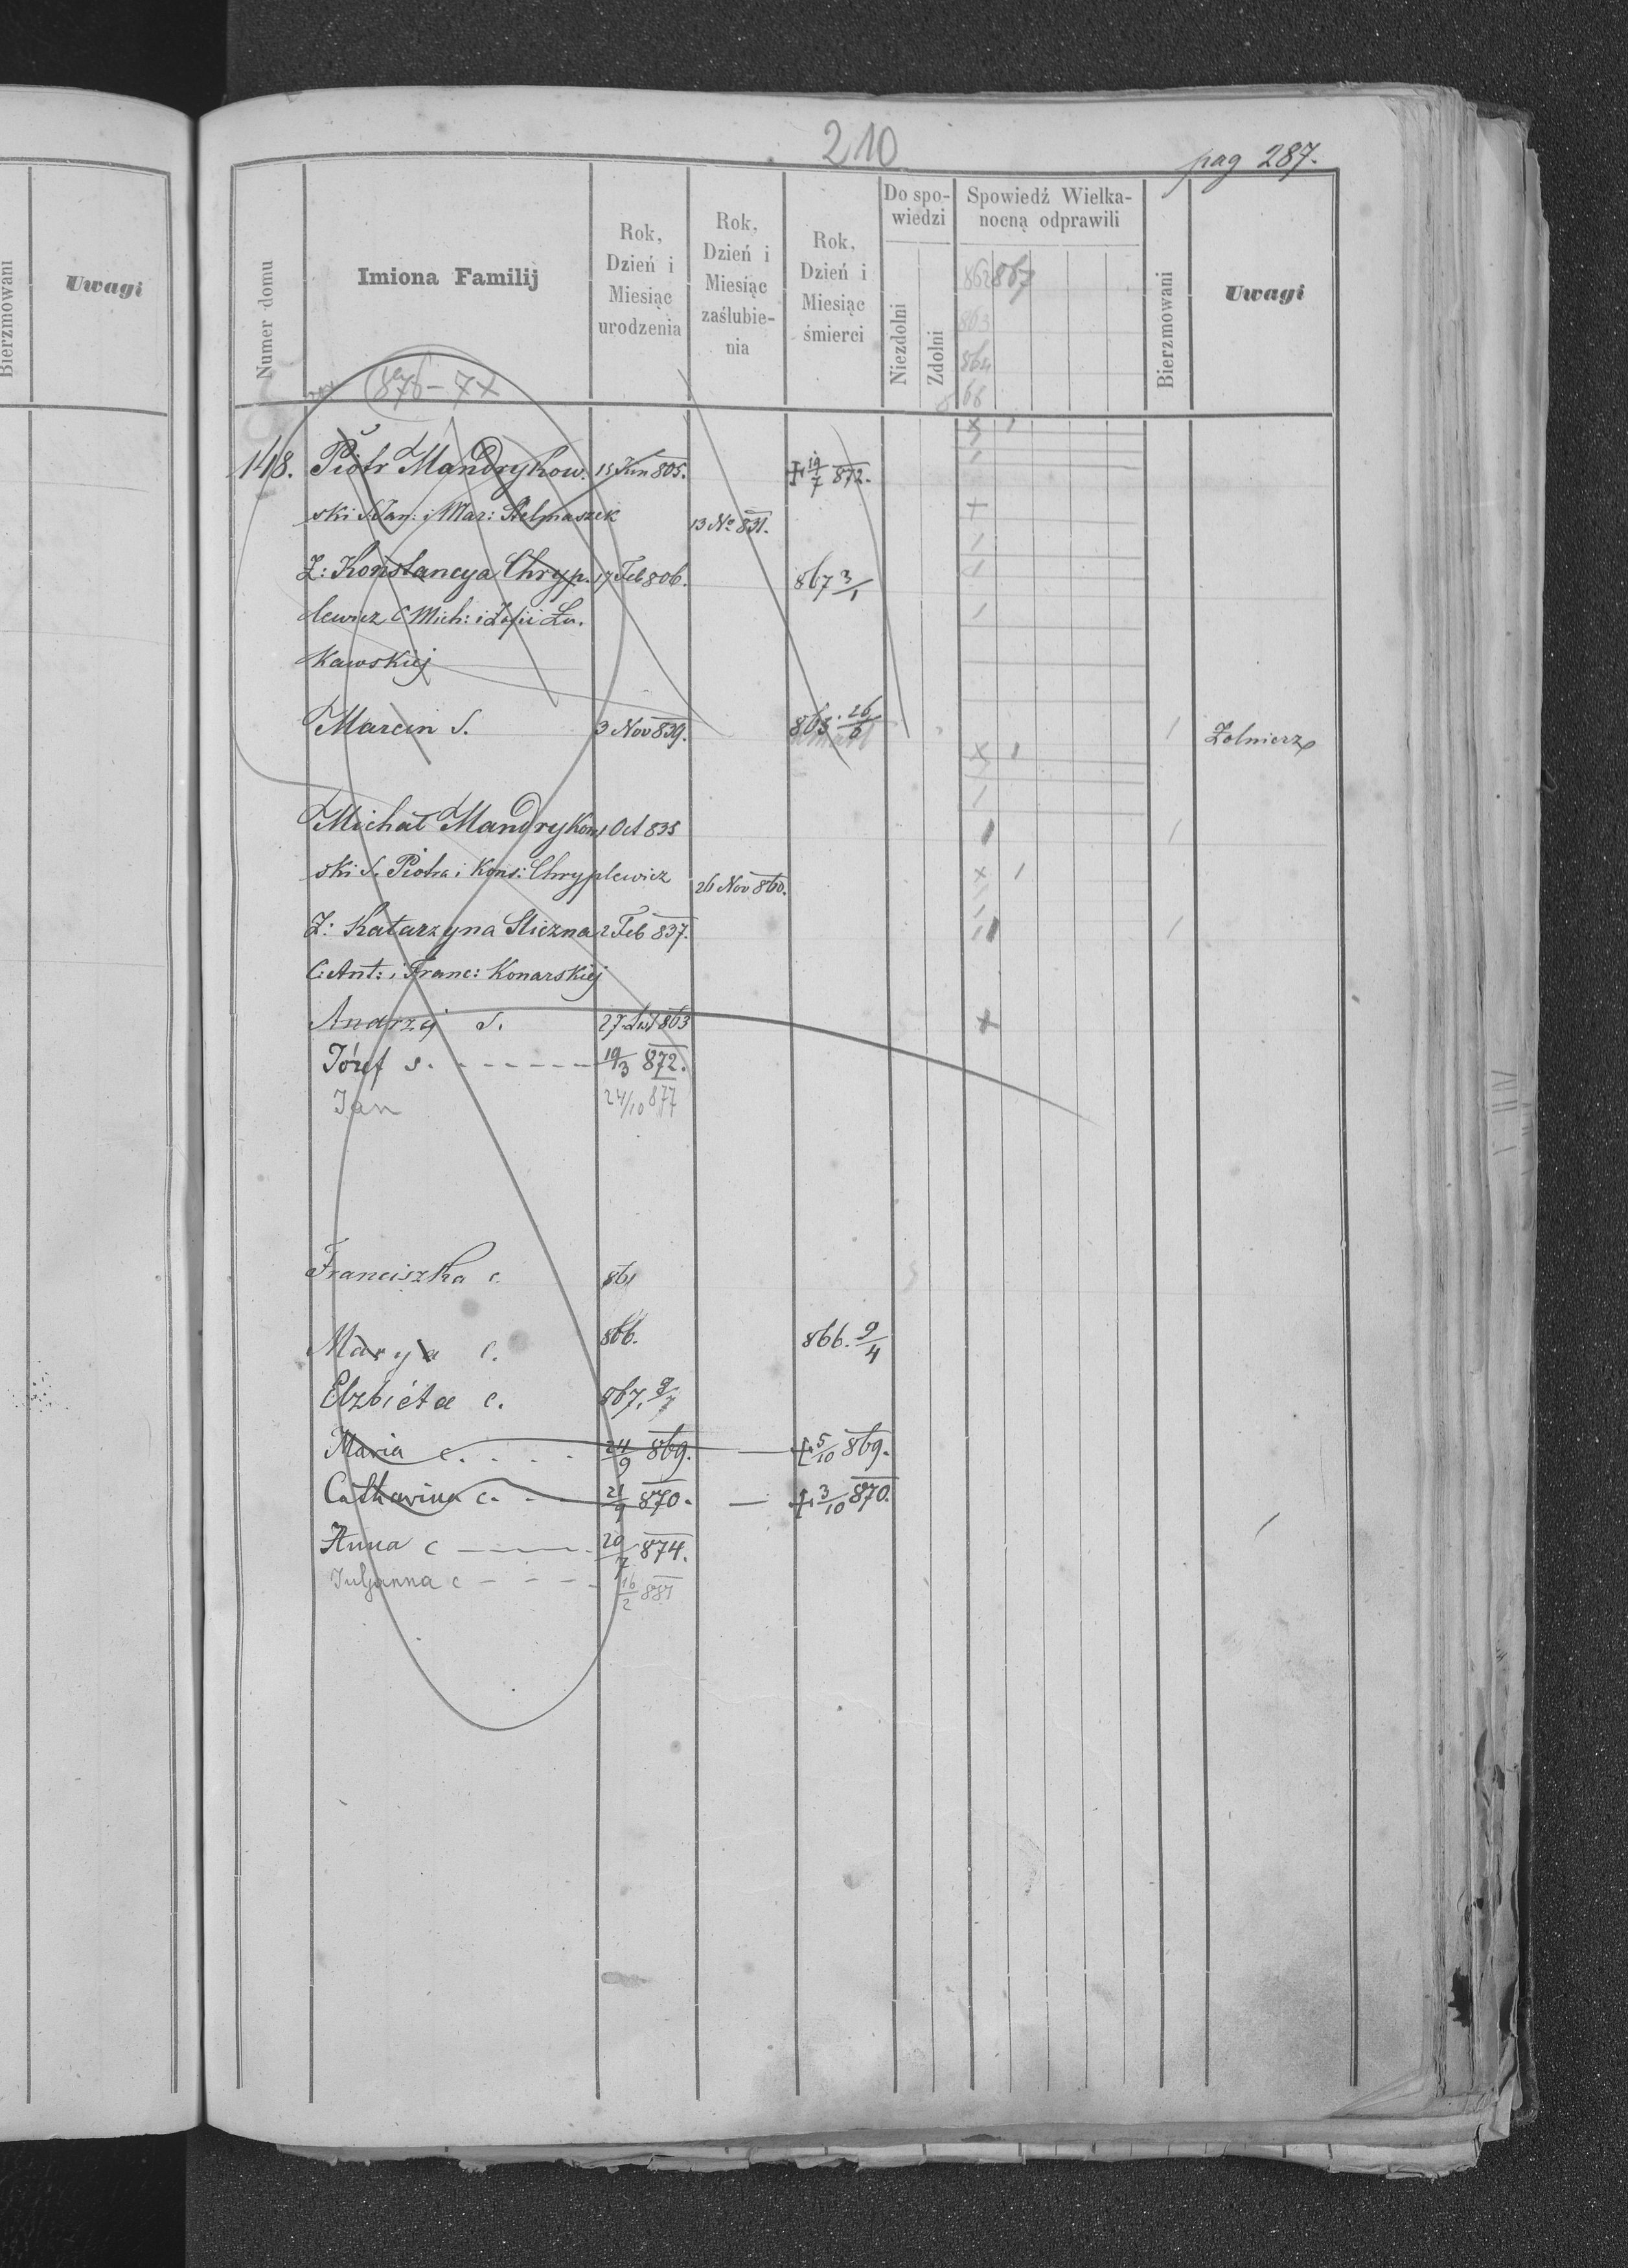 210
pag 287.
Bierzmowani
Uwagi
Numer domu
Imiona Familij
Rok, Dzień i Miesiąc urodzenia
Rok, Dzień i Miesiąc zaślubie-nia
Rok, Dzień i Miesiąc śmierci
Do spo-wiedzi
Niezdolni
Zdolni
Spowiedź Wielka-nocną odprawili
862 867
863
864
68
Bierzmowani
Uwagi
876 - 7+
148. Piotr Mandrykow. 15 Jun 805. + 19/7 872.
ski S. Jan: i Mar: Stelmaszek 13 No 831.
Ż: Konstancya Chryp. 17 Feb 806. 867 3/1
lewicz C Mich: i Zofii Łu.
kawskiej
Marcin S. 3 Nov 839. 863. 26/6 Żolnierz
Michał Mandrykow 1 Oct 835
ski S. Piotra i Kons: Chryplewicz 26 Nov 860.
Ż: Katarzyna Sliczna 2 Feb 837.
C: Ant: i Franc: Konarskiej
Andrzej S. 27 863
Józef s. - - - - - - 19/3 872.
Jan 24/10 877
Franciszka c. 861
Marya c. 866. 866. 9/4
Elzbiéta c. 867.
Maria c. . . . 24/9 869. — + 5/10 869.
Catharina c. - - 21/9 870. — + 3/10 870.
Anna c — - - - 20/7 874.
Juljanna c - - - - 16/2 881